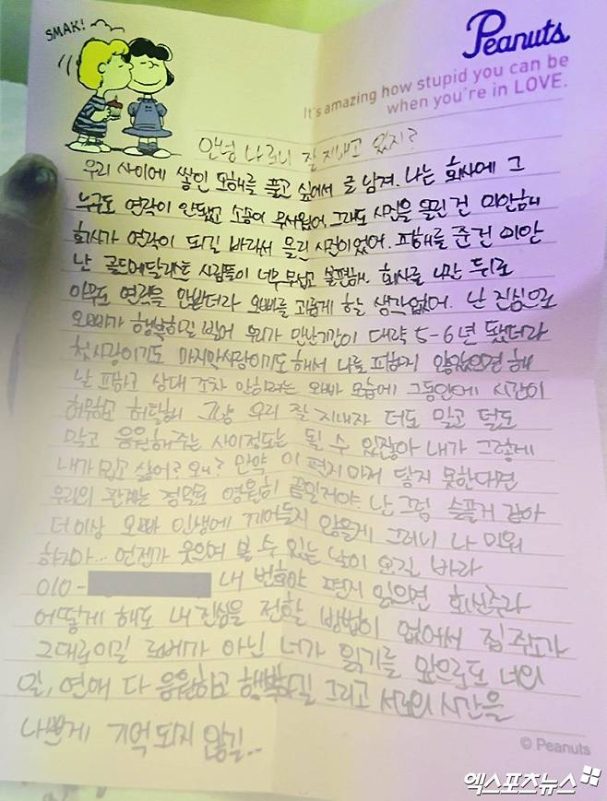 SMAK!
Peanuts
It's amazing how stupid you can be
when you're in LOVE.
안녕 나 론니 잘 지내고 있지?
우리 사이에 쌓인 오해를 풀고 싶어서 글 남겨. 나는 회사에 그
누구도 연락이 안됐고 소송이 무서웠어. 그래도 사진을 올린 건 미안해
회사가 연락이 되길 바라서 올린 사진이었어. 피해를 준건 미안
난 골드메달리스트 사람들이 너무 무섭고 불편해. 회사를 나간 뒤로
아무도 연락을 안받더라 오빠를 괴롭게 할 생각없어. 난 진심으로
오빠가 행복하길 빌어 우리가 만난기간이 대략 5-6년 됐더라
첫사랑이기도 마지막사랑이기도 해서 나를 피하지 않았으면 해
난 피하고 상대 조차 안하려는 오빠 모습에 그동안에 시간이
허무하고 허탈해 그냥 우리 잘 지내자 더도 말고 덜도
말고 응원해주는 사이정도는 될 수 있잖아 내가 그렇게
내가 밉고 싫어? 왜? 만약 이 편지마저 닿지 못한다면
우리의 관계는 정말로 영원히 끝일거야. 난 그럼 슬플거 같아
더이상 오빠 인생에 끼어들지 않을게 그러니 나 미워
하지마... 언젠가 웃으며 볼 수 있는 날이 오길 바라
010- 내 번호야 편지 읽으면 회신주라
어떻게 해도 내 진심을 전할 방법이 없어서 집 주소가
그대로이길 로베가 아닌 너가 읽기를 앞으로도 너의
일, 연애 다 응원하고 행복하길 그리고 서로의 시간을
나쁘게 기억되지 않길..
© Peanuts
엑스포츠뉴스